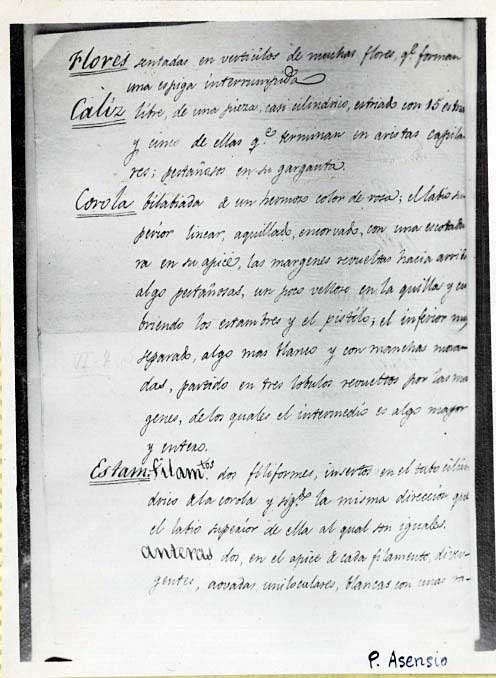 Flores sentadas en verticilos de muchas flores, q.e forman
una espiga interrumpida
Caliz libre, de una pieza, casi cilindrico, estriado con 15 estri
y cinco de ellas q.e terminan en aristas capila-
res; pestañoso en su garganta.
Corola bilabiada de un hermoso color de rosa; el labio su
perior linear, aquillado, encorvado, con una escotadu
ra en su apice, las margenes revueltas hacia arriba
algo pestañosas, un poco velloso en la quilla y cu
briendo los estambres y el pistilo; el inferior muy
separado, algo mas blanco y con manchas mora-
das, partido en tres lobulos revueltos por las ma
genes, de los quales el intermedio es algo mayor
y entero.
Estam. Filam.tos dos filiformes, insertos en el tubo cilin
drico de la corola y sig.do la misma direccion que
el labio superior de ella al qual son iguales.
anteras dos, en el apice de cada filamento, diver-
gentes, aovadas, uniloculares, blancas con unas ra-
P. Asensio